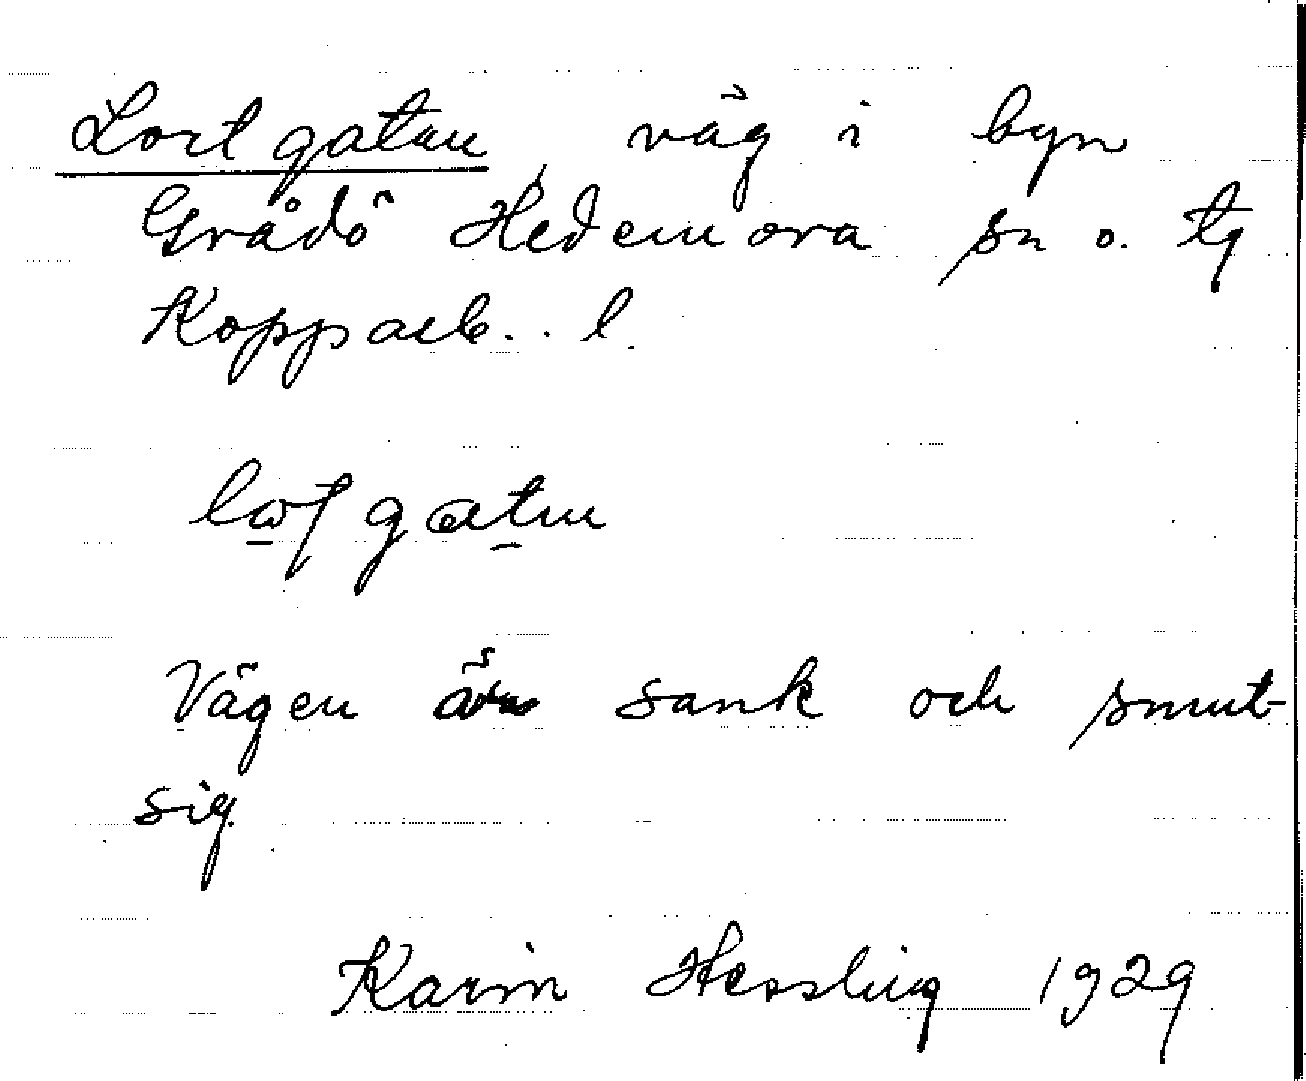 Lortgatan, väg i byn
Grådö Hedemora sn o. tg
Kopparb. l.
Vägen är sank och smut-
sig.
Karin Hessling 1929